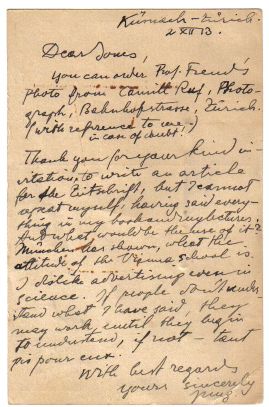 Küsnach-Zürich.
2 XII 13.
Dear Jones,
you can order Prof. Freud's
photo from Camill Ruf, Photo-
graph, Bahnhofstrasse, Zürich.
(with reference to me,)
in case of doubt!
Thank you for your kind in-
vitation, to write an article
for the Zeitschrift, but I cannot
repeat myself, having said every-
thing in my book and my lectures.
But what would be the use of it?
München has shown, what the
attitude of the Vienna school is.
I dislike advertising even in
science. If people don't under-
stand what I have said, they
may work, until they begin
to understand, if not – tant
pis pour eux.
With best regards
yours sincerely
Jung.